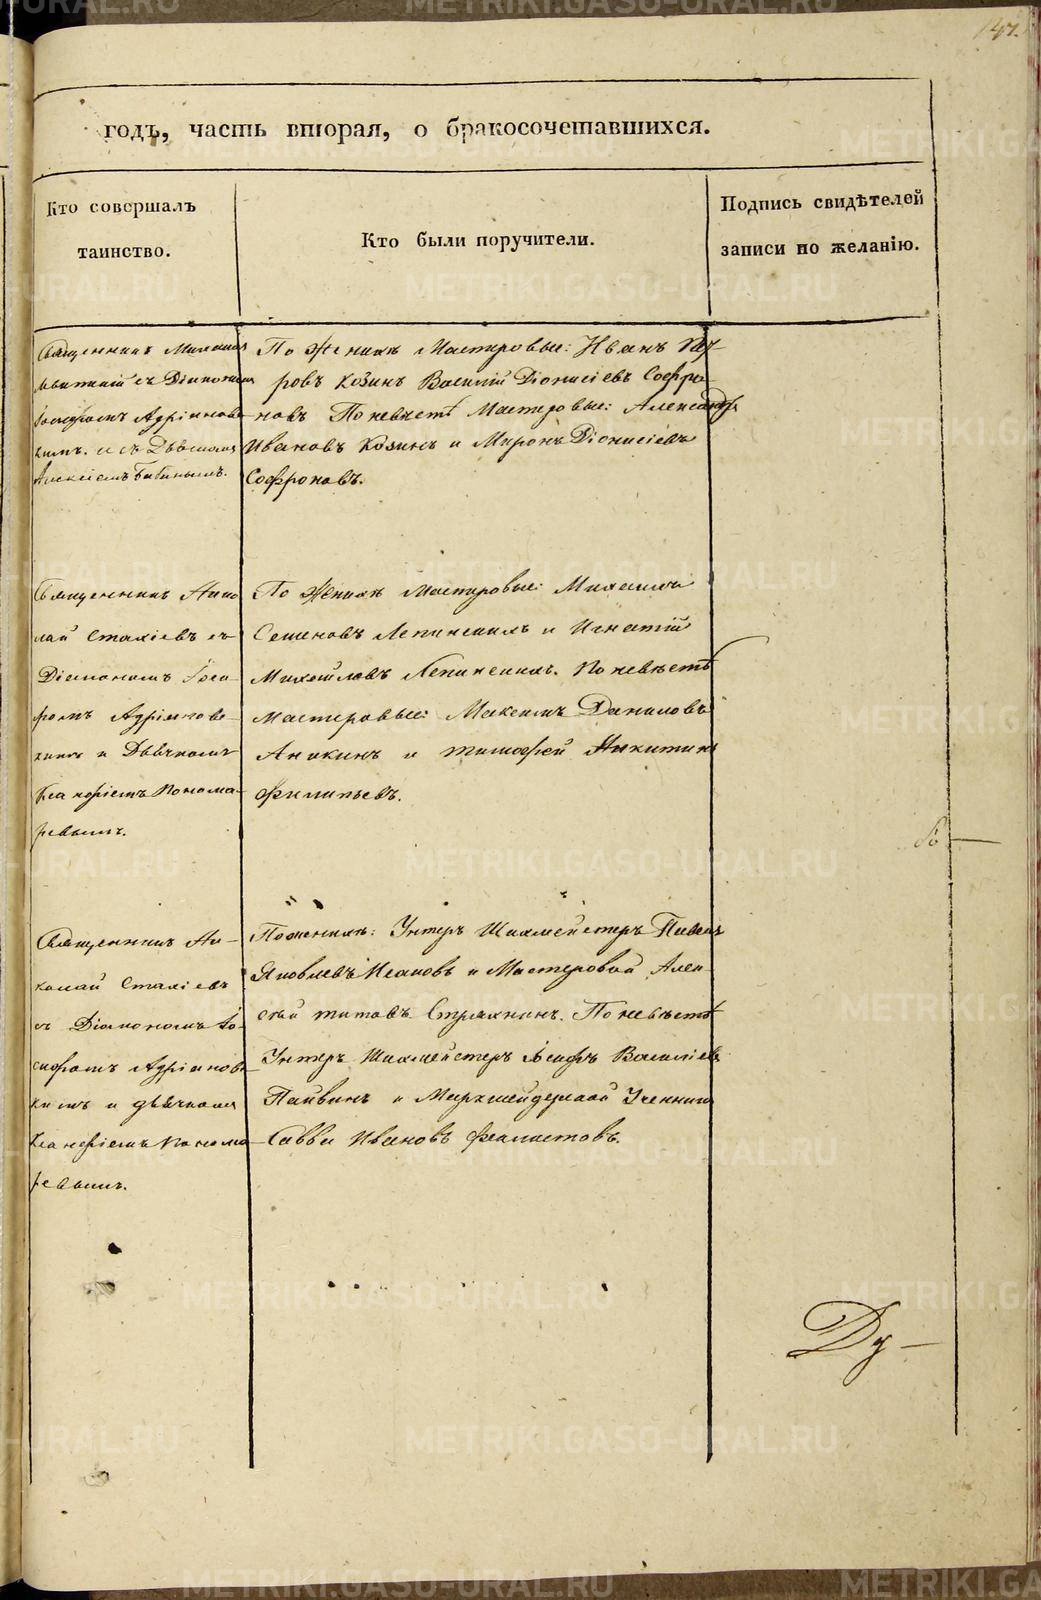 147.
годъ, часть вторая, о бракосочетавшихся.
Кто совершалъ
таинство.
Кто были поручители.
Подпись свидѣтелей
записи по желанію.
Священникъ Михаилъ
съ Діакономъ
Іосифомъ Адріановс
кимъ. и съ Дьячкомъ
Алексіемъ Бабинымъ.
По Женихѣ Мастеровые: Иванъ
ровъ Козинъ Василій Діонисіевъ Софро-
новъ По невѣстѣ Мастеровые: Александръ
Ивановъ Козинъ и Миронъ Діонисіевъ
Софроновъ.
Священникъ Нико
лай Стахіевъ съ
Діакономъ Іоси-
фомъ Адріановс-
кимъ и Дьячкомъ
Понома-
ревымъ.
По Женихѣ Мастеровые: Михаилъ
Семеновъ Лепинскихъ и Игнатій
Михайловъ Лепинскихъ. По невѣстѣ
Мастеровые: Максимъ Даниловъ
Аникинъ и Тимофей Никитинъ
Филипьевъ.
Священникъ Ни-
колай Стахіевъ
съ Діакономъ Іо-
сифомъ Адріановс-
кимъ и дьячкомъ
Понома-
ревымъ.
По женихѣ: Унтеръ Шихмейстеръ Павелъ
Яковлевъ Исаковъ и Мастеровой Алек-
сѣй Титовъ Стряхнинъ. По невѣстѣ
Унтеръ Шихмейстеръ Іосифъ Василіевъ
Пайвинъ и Маркшейдерской Ученикъ
Савва Ивановъ Феклистовъ.
Ду-
METRIKI.GASO-URAL.RU